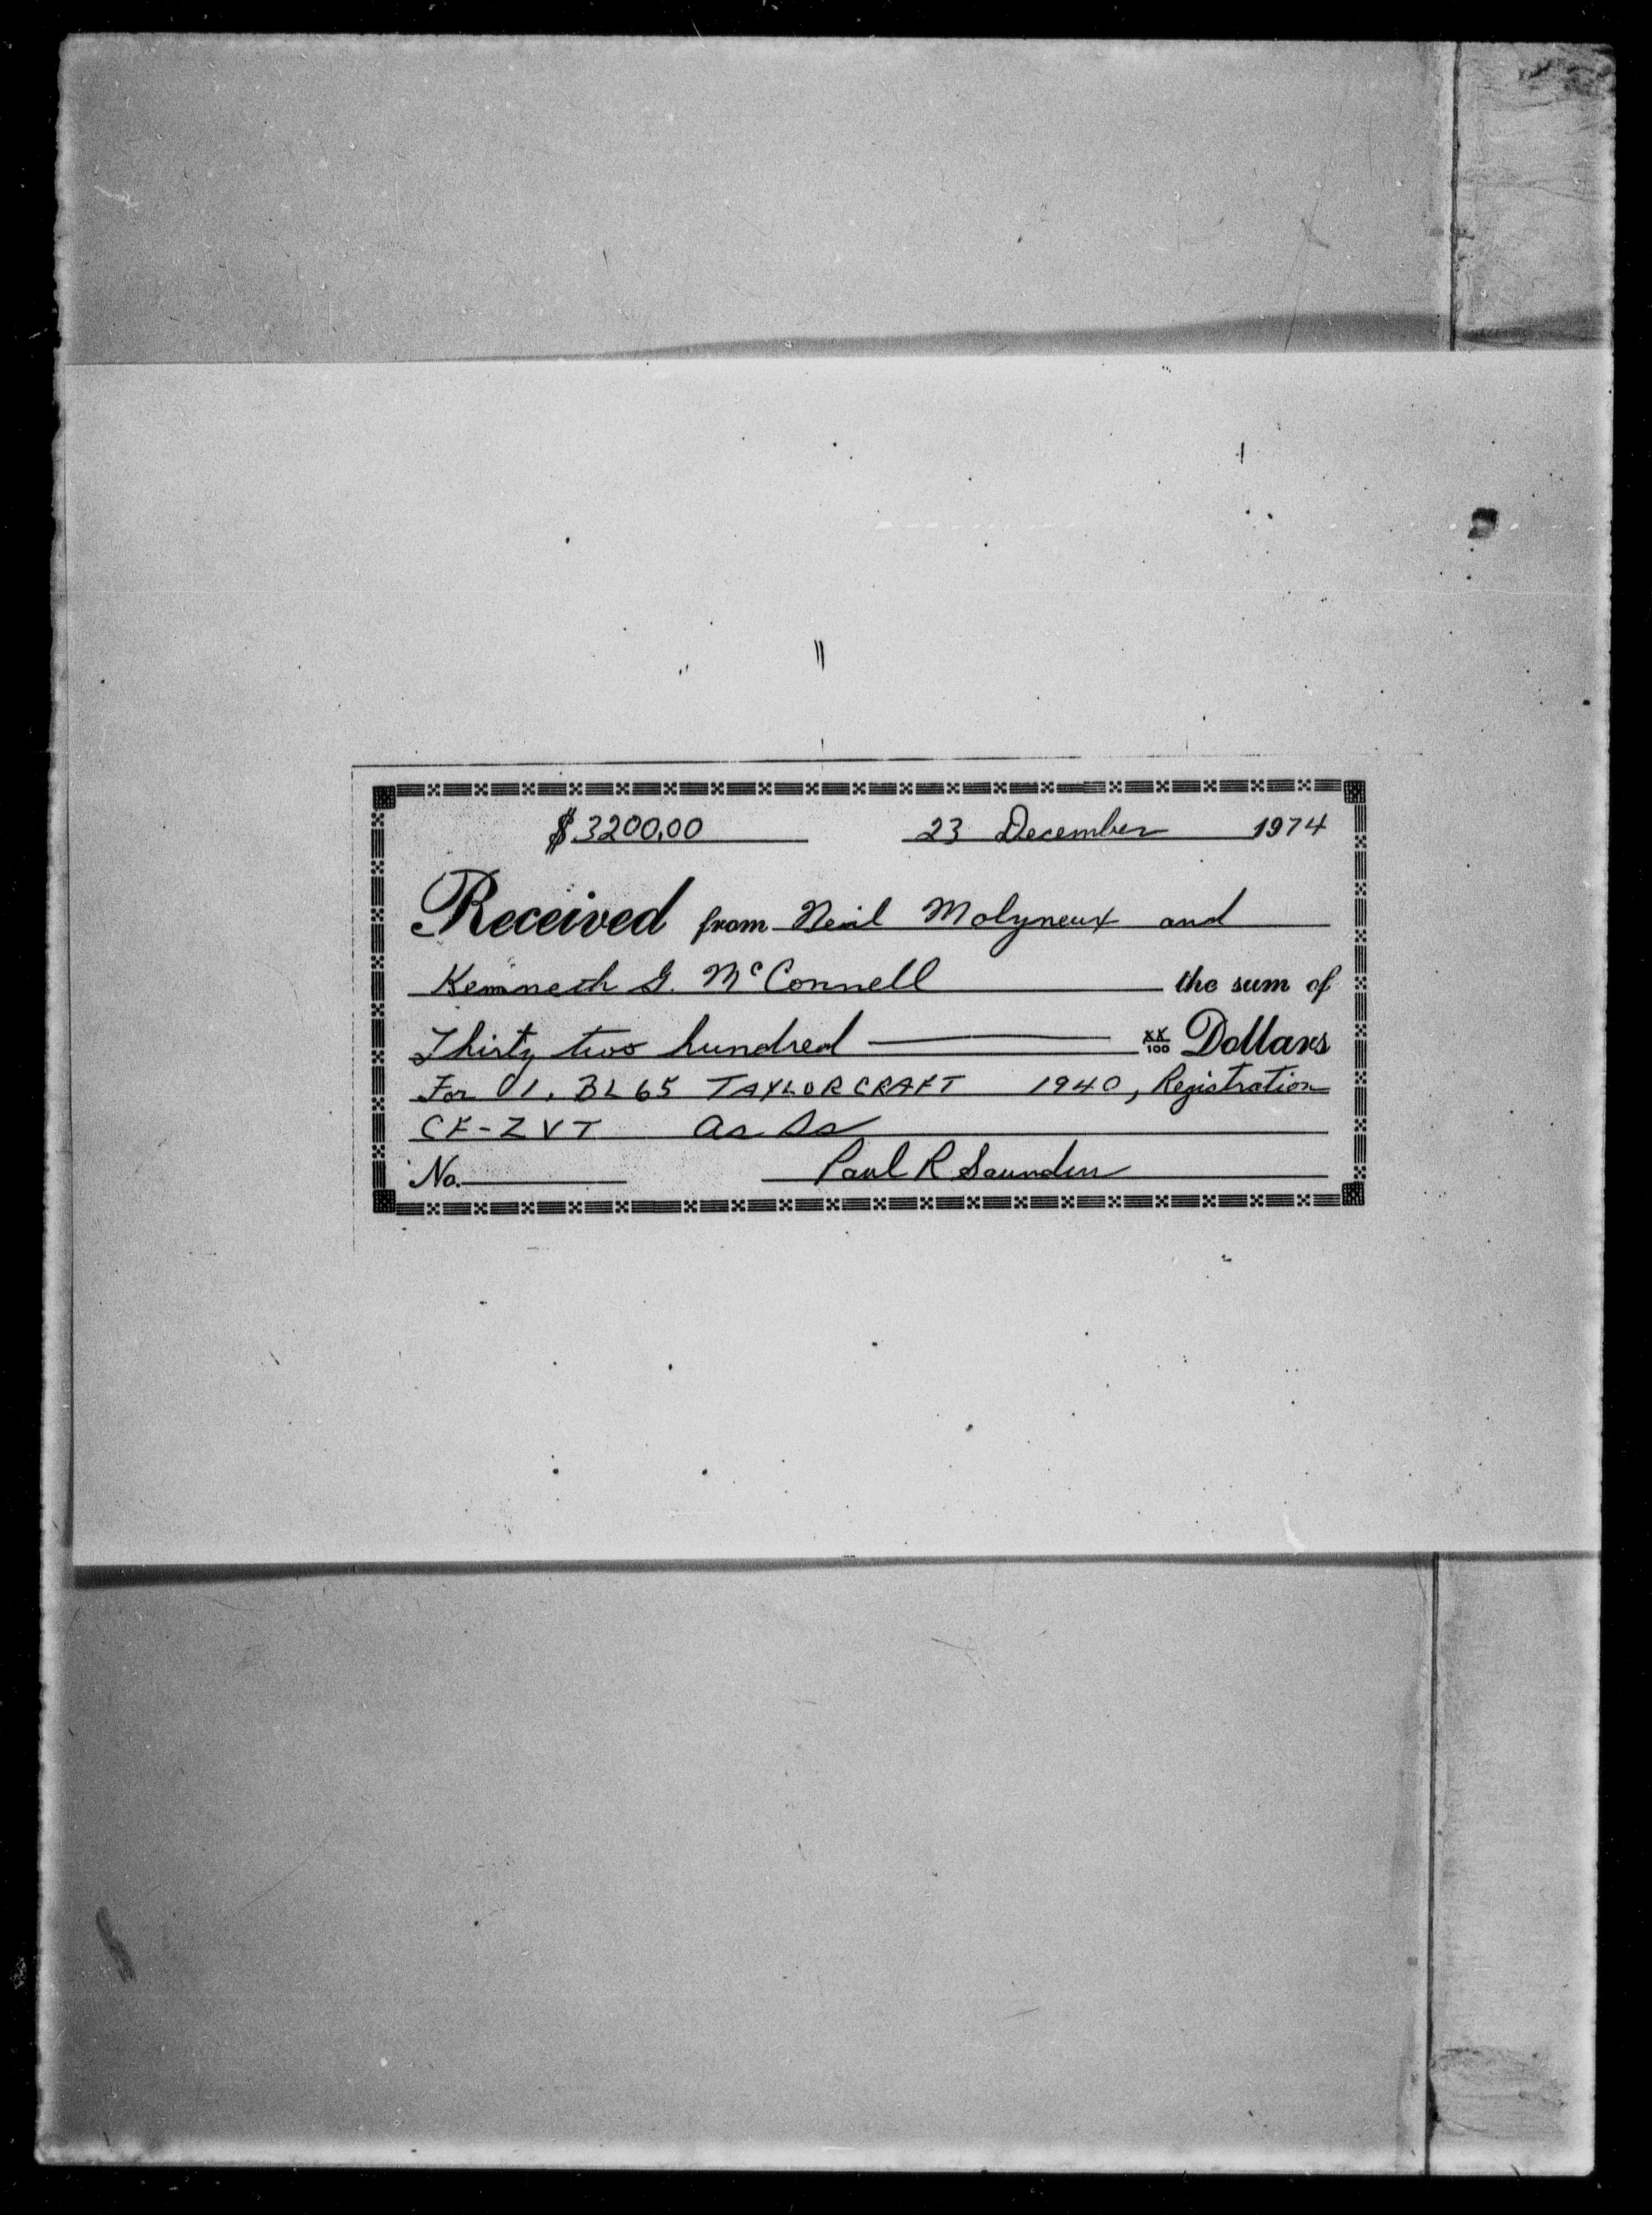 $3200.00 23 December 1974
Received from Neil Molyneux and
Kenneth G. McConnell the sum of
Thirty two hundred xx/100 Dollars
For 1. BL65 TAYLORCRAFT 1940, Registration
CF-ZVT As Is
No. Paul R Saunders